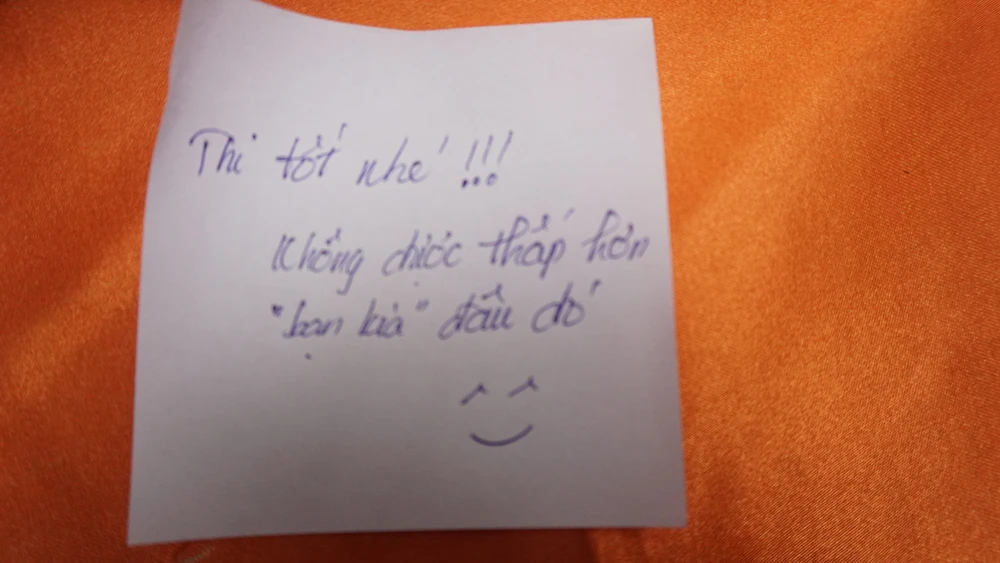 Thi tốt nhé !!!
Không được thấp hơn
"bạn kia" đâu đó